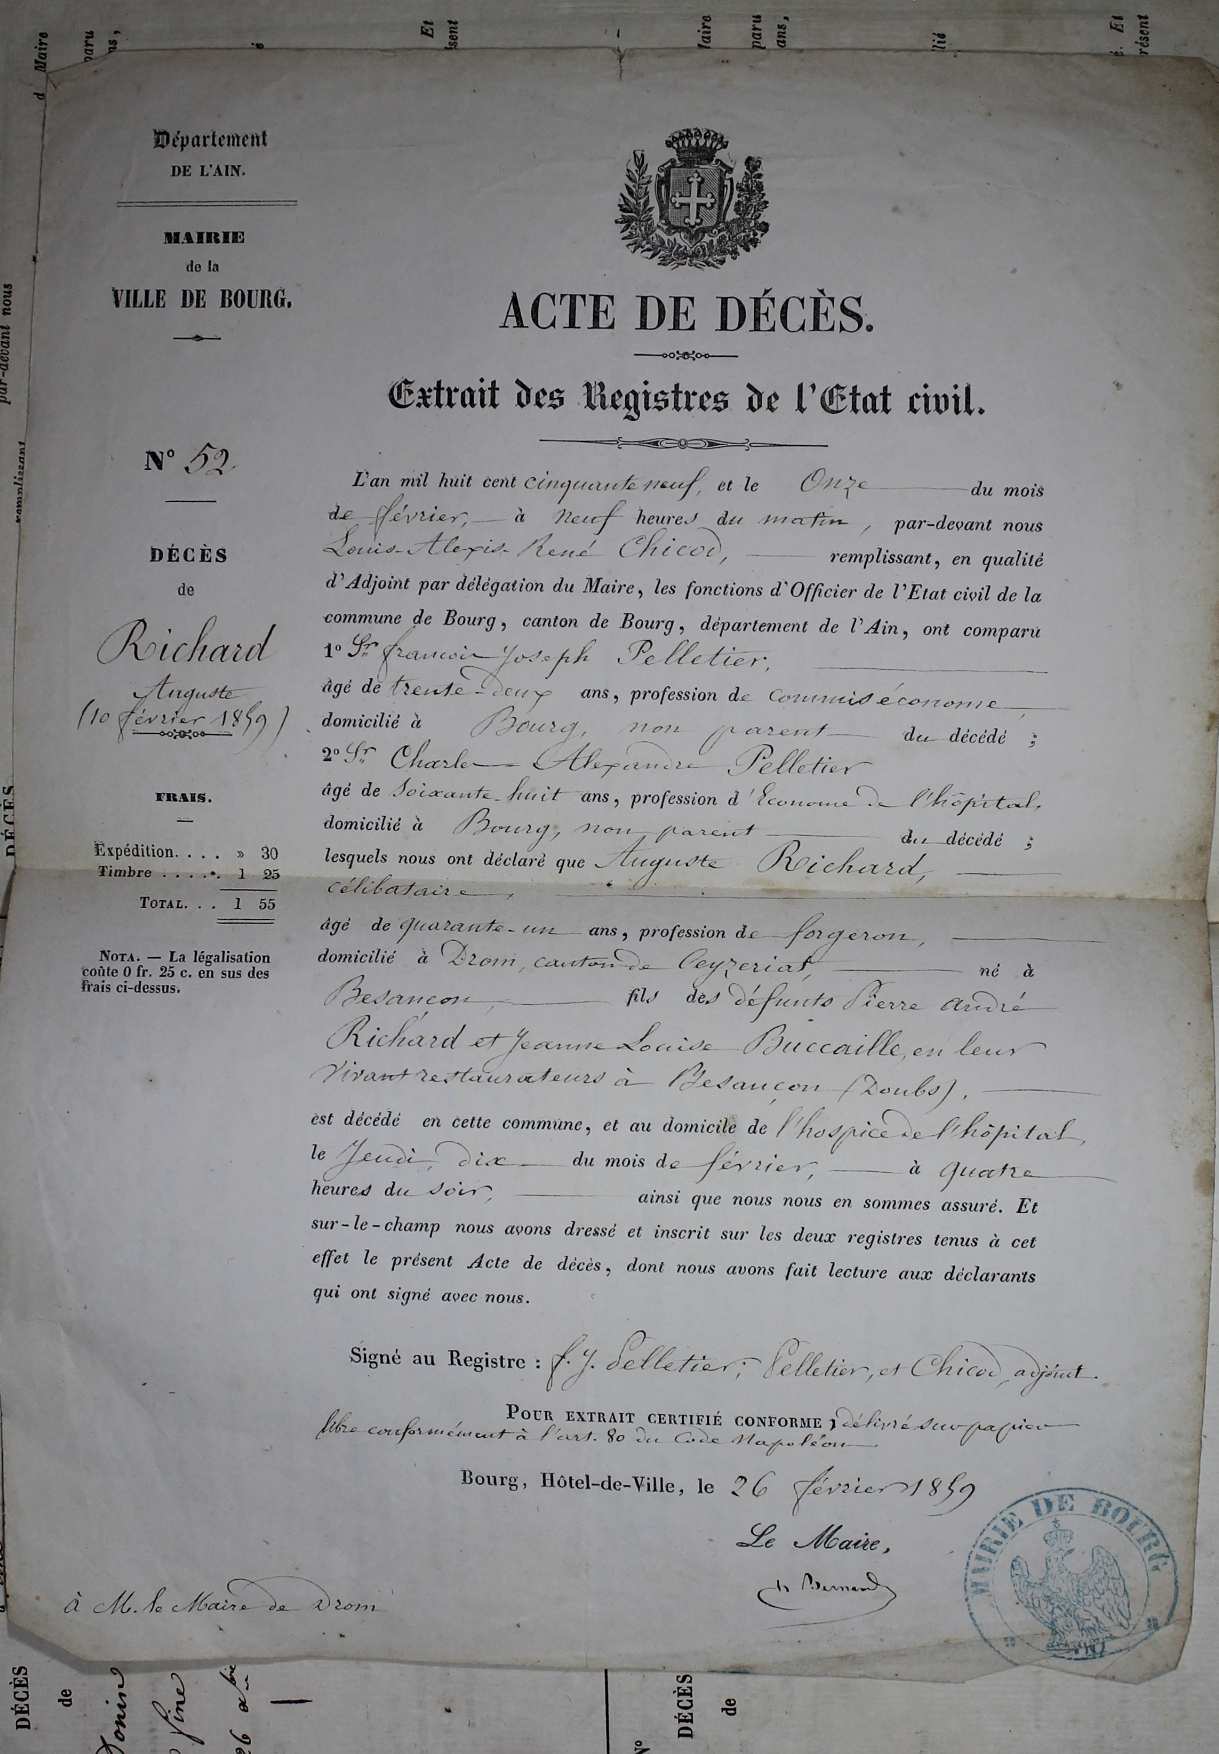 Département
DE L'AIN.
MAIRIE
de la
VILLE DE BOURG.
ACTE DE DÉCÈS.
Extrait des Registres de l'Etat civil.
N° 52
DÉCÈS
de
Richard
Auguste
(10 février 1859)
FRAIS.
Expédition. . . . » 30
Timbre . . . . . 1 25
TOTAL. . . 1 55
NOTA. — La légalisation
coûte 0 fr. 25 c. en sus des
frais ci-dessus.
L'an mil huit cent cinquante neuf, et le Onze du mois
de février, à neuf heures du matin, par-devant nous
Louis-Alexis-René Chicod, remplissant, en qualité
d'Adjoint par délégation du Maire, les fonctions d'Officier de l'Etat civil de la
commune de Bourg, canton de Bourg, département de l'Ain, ont comparu
1° Sr. françois Joseph Pelletier,
âgé de trente-deux ans, profession de commis économe,
domicilié à Bourg, non parent du décédé ;
2° Sr. Charles Alexandre Pelletier
âgé de soixante-huit ans, profession d'Econome de l'hôpital,
domicilié à Bourg, non parent du décédé ;
lesquels nous ont déclaré que Auguste Richard,
célibataire,
âgé de quarante-un ans, profession de forgeron,
domicilié à Drom, canton de Ceyzeriat, né à
Besançon, fils des défunts Pierre André
Richard et Jeanne Louise Buccaille, en leur
vivant restaurateurs à Besançon (Doubs),
est décédé en cette commune, et au domicile de l'hospice de l'hôpital,
le Jeudi, dix du mois de février, à quatre
heures du soir, ainsi que nous nous en sommes assuré. Et
sur-le-champ nous avons dressé et inscrit sur les deux registres tenus à cet
effet le présent Acte de décès, dont nous avons fait lecture aux déclarants
qui ont signé avec nous.
Signé au Registre : f. J. Pelletier; Pelletier, et Chicod, adjoint.
POUR EXTRAIT CERTIFIÉ CONFORME, délivré sur papier
libre conformément à l'art. 80 du Code Napoléon
Bourg, Hôtel-de-Ville, le 26 février 1859
Le Maire,
Bernard
MAIRIE DE BOURG
(AIN)
à M. le Maire de Drom
DÉCÈS
de
DÉCÈS
de
N°